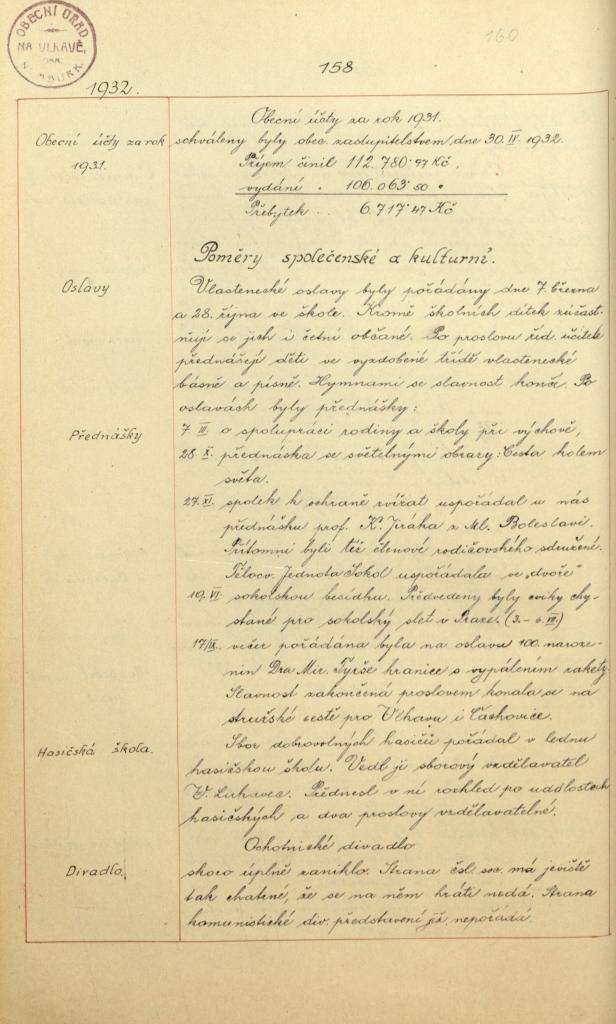 OBECNÍ ÚŘAD
NA VLKAVĚ,
160
158
1932.
Obecní účty za rok 1931.
Obecní účty za rok
1931.
schváleny byly obec. zastupitelstvem dne 30. IV. 1932.
Příjem činil 112.780.97 Kč,
vydání „ 106.063.50 „
Přebytek .. 6.717.47 Kč
Poměry společenské a kulturní.
Oslavy
Vlastenecké oslavy byly pořádány dne 7. března
a 28. října ve škole. Kromě školních dítek zúčast-
ňují se jich i četní občané. Po proslovu říd. učitele
přednášejí děti ve vyzdobené třídě vlastenecké
básně a písně. Hymnami se slavnost končí. Po
oslavách byly přednášky:
Přednášky
7. III. o spolupráci rodiny a školy při výchově,
28. X. přednáška se světelnými obrazy: Cesta kolem
světa.
27. XI. spolek k ochraně zvířat uspořádal u nás
přednášku prof. K. Jiráka z Ml. Boleslavi.
Přítomni byli též členové rodičovského sdružení.
Tělocv. Jednota Sokol uspořádala ve „dvoře"
19. VI. sokolskou besídku. Předvedeny byly cviky chy-
stané pro sokolský slet v Praze. (3. - 6. VII.)
17/IX. večer pořádána byla na oslavu 100. naroze-
nin Dra Mir. Tyrše hranice s vypálením rakety.
Slavnost zakončená proslovem konala se na
stružské cestě pro Vlkavu i Čachovice.
Hasičská škola.
Sbor dobrovolných hasičů pořádal v lednu
hasičskou školu. Vedl ji sborový vzdělavatel
V. Lukavec. Přednesl v ní rozhled po událostech
hasičských a dva proslovy vzdělavatelné.
Ochotnické divadlo
Divadlo.
skoro úplně zaniklo. Strana čsl. soc. má jeviště
tak chatrné, že se na něm hráti nedá. Strana
komunistické div. představení již nepořádá.